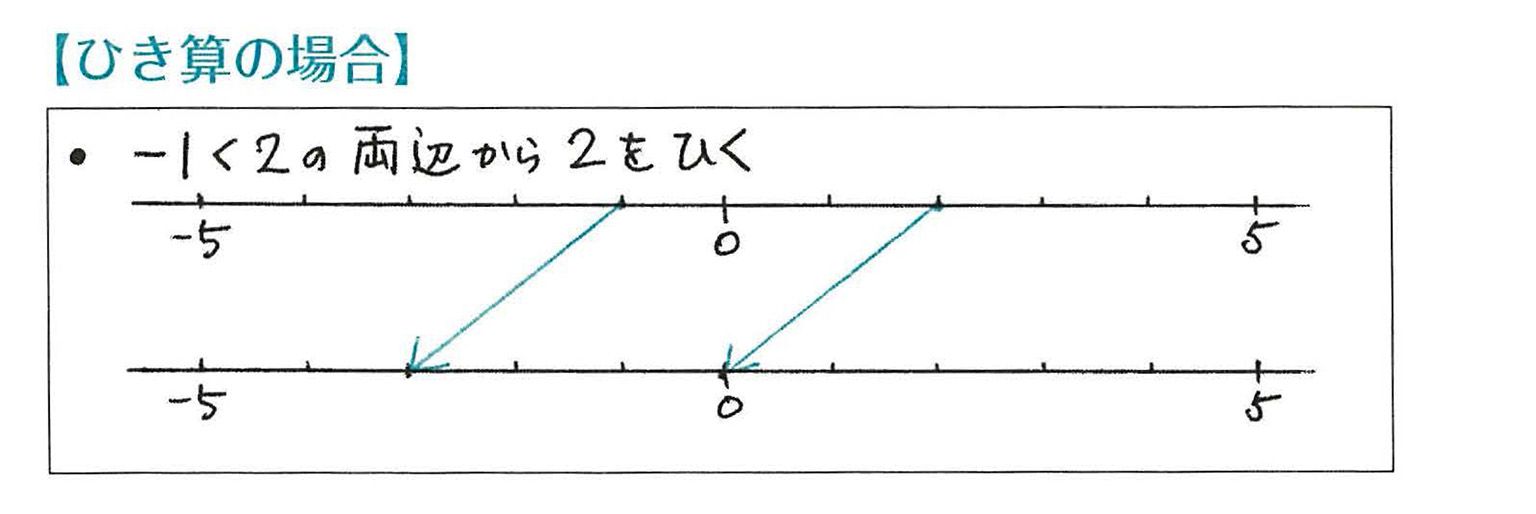 【ひき算の場合】
• -1<2の両辺から2をひく
-5 0 5
-5 0 5